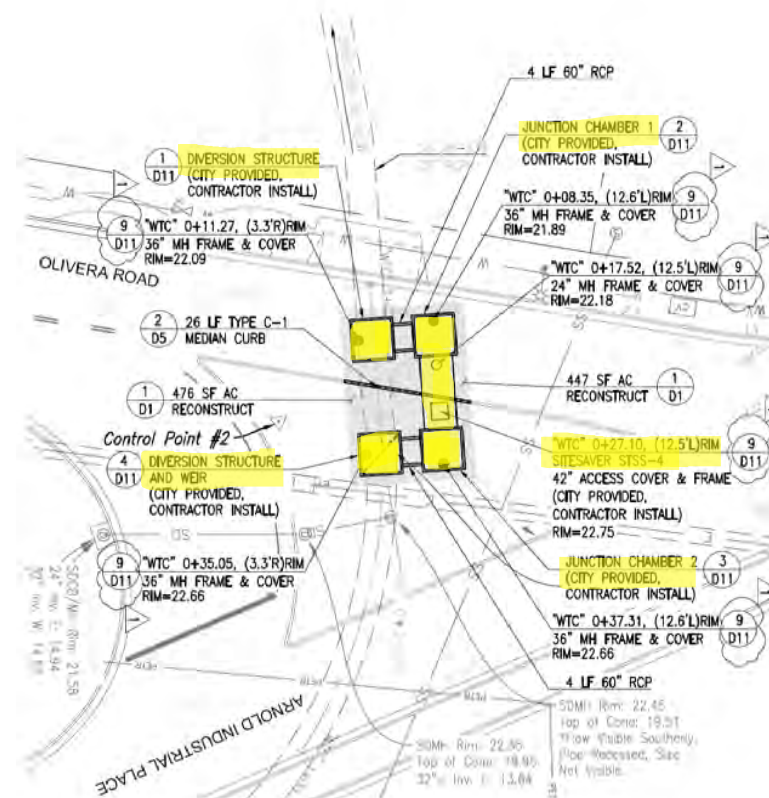 4 LF 60" RCP
1
D11
DIVERSION STRUCTURE
(CITY PROVIDED,
CONTRACTOR INSTALL)
JUNCTION CHAMBER 1
(CITY PROVIDED,
CONTRACTOR INSTALL)
2
D11
1
9
D11
"WTC" 0+11.27, (3.3'R)RIM
36" MH FRAME & COVER
RIM=22.09
"WTC" 0+08.35, (12.6'L)RIM
36" MH FRAME & COVER
RIM=21.89
9
D11
1
OLIVERA ROAD
"WTC" 0+17.52, (12.5'L)RIM
24" MH FRAME & COVER
RIM=22.18
9
D11
1
2
D5
26 LF TYPE C-1
MEDIAN CURB
1
D1
476 SF AC
RECONSTRUCT
447 SF AC
RECONSTRUCT
1
D1
Control Point #2
4
D11
DIVERSION STRUCTURE
AND WEIR
(CITY PROVIDED,
CONTRACTOR INSTALL)
"WTC" 0+27.10, (12.5'L)RIM
SITESAVER STSS-4
42" ACCESS COVER & FRAME
(CITY PROVIDED,
CONTRACTOR INSTALL)
RIM=22.75
9
D11
SD
9
D11
"WTC" 0+35.05, (3.3'R)RIM
36" MH FRAME & COVER
RIM=22.66
1
JUNCTION CHAMBER 2
(CITY PROVIDED,
CONTRACTOR INSTALL)
3
D11
"WTC" 0+37.31, (12.6'L)RIM
36" MH FRAME & COVER
RIM=22.66
9
D11
1
4 LF 60" RCP
Rim: 21.58
24" Inv. E: 14.94
ARNOLD INDUSTRIAL PLACE
SDMH Rim: 22.45
Top of Conc: 19.51
Flow Visible Southerly,
Pipe Recessed, Size
Not Visible.
Top of Conc: